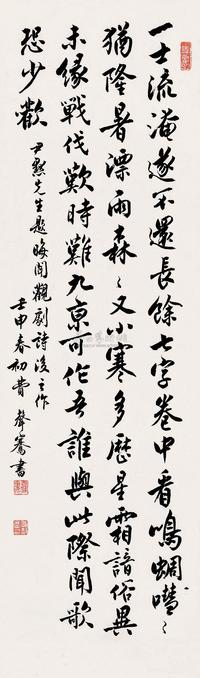 一士流淹遂不還長餘七字卷中看鳴蜩嘒〻
猶隆暑漂雨森〻又小寒多歷星霜諳俗異
未緣戰伐歎時難九京可作吾誰與此際聞歌
恐少歡
尹默先生題晦聞觀劇詩後之作
壬申春初費聲騫書